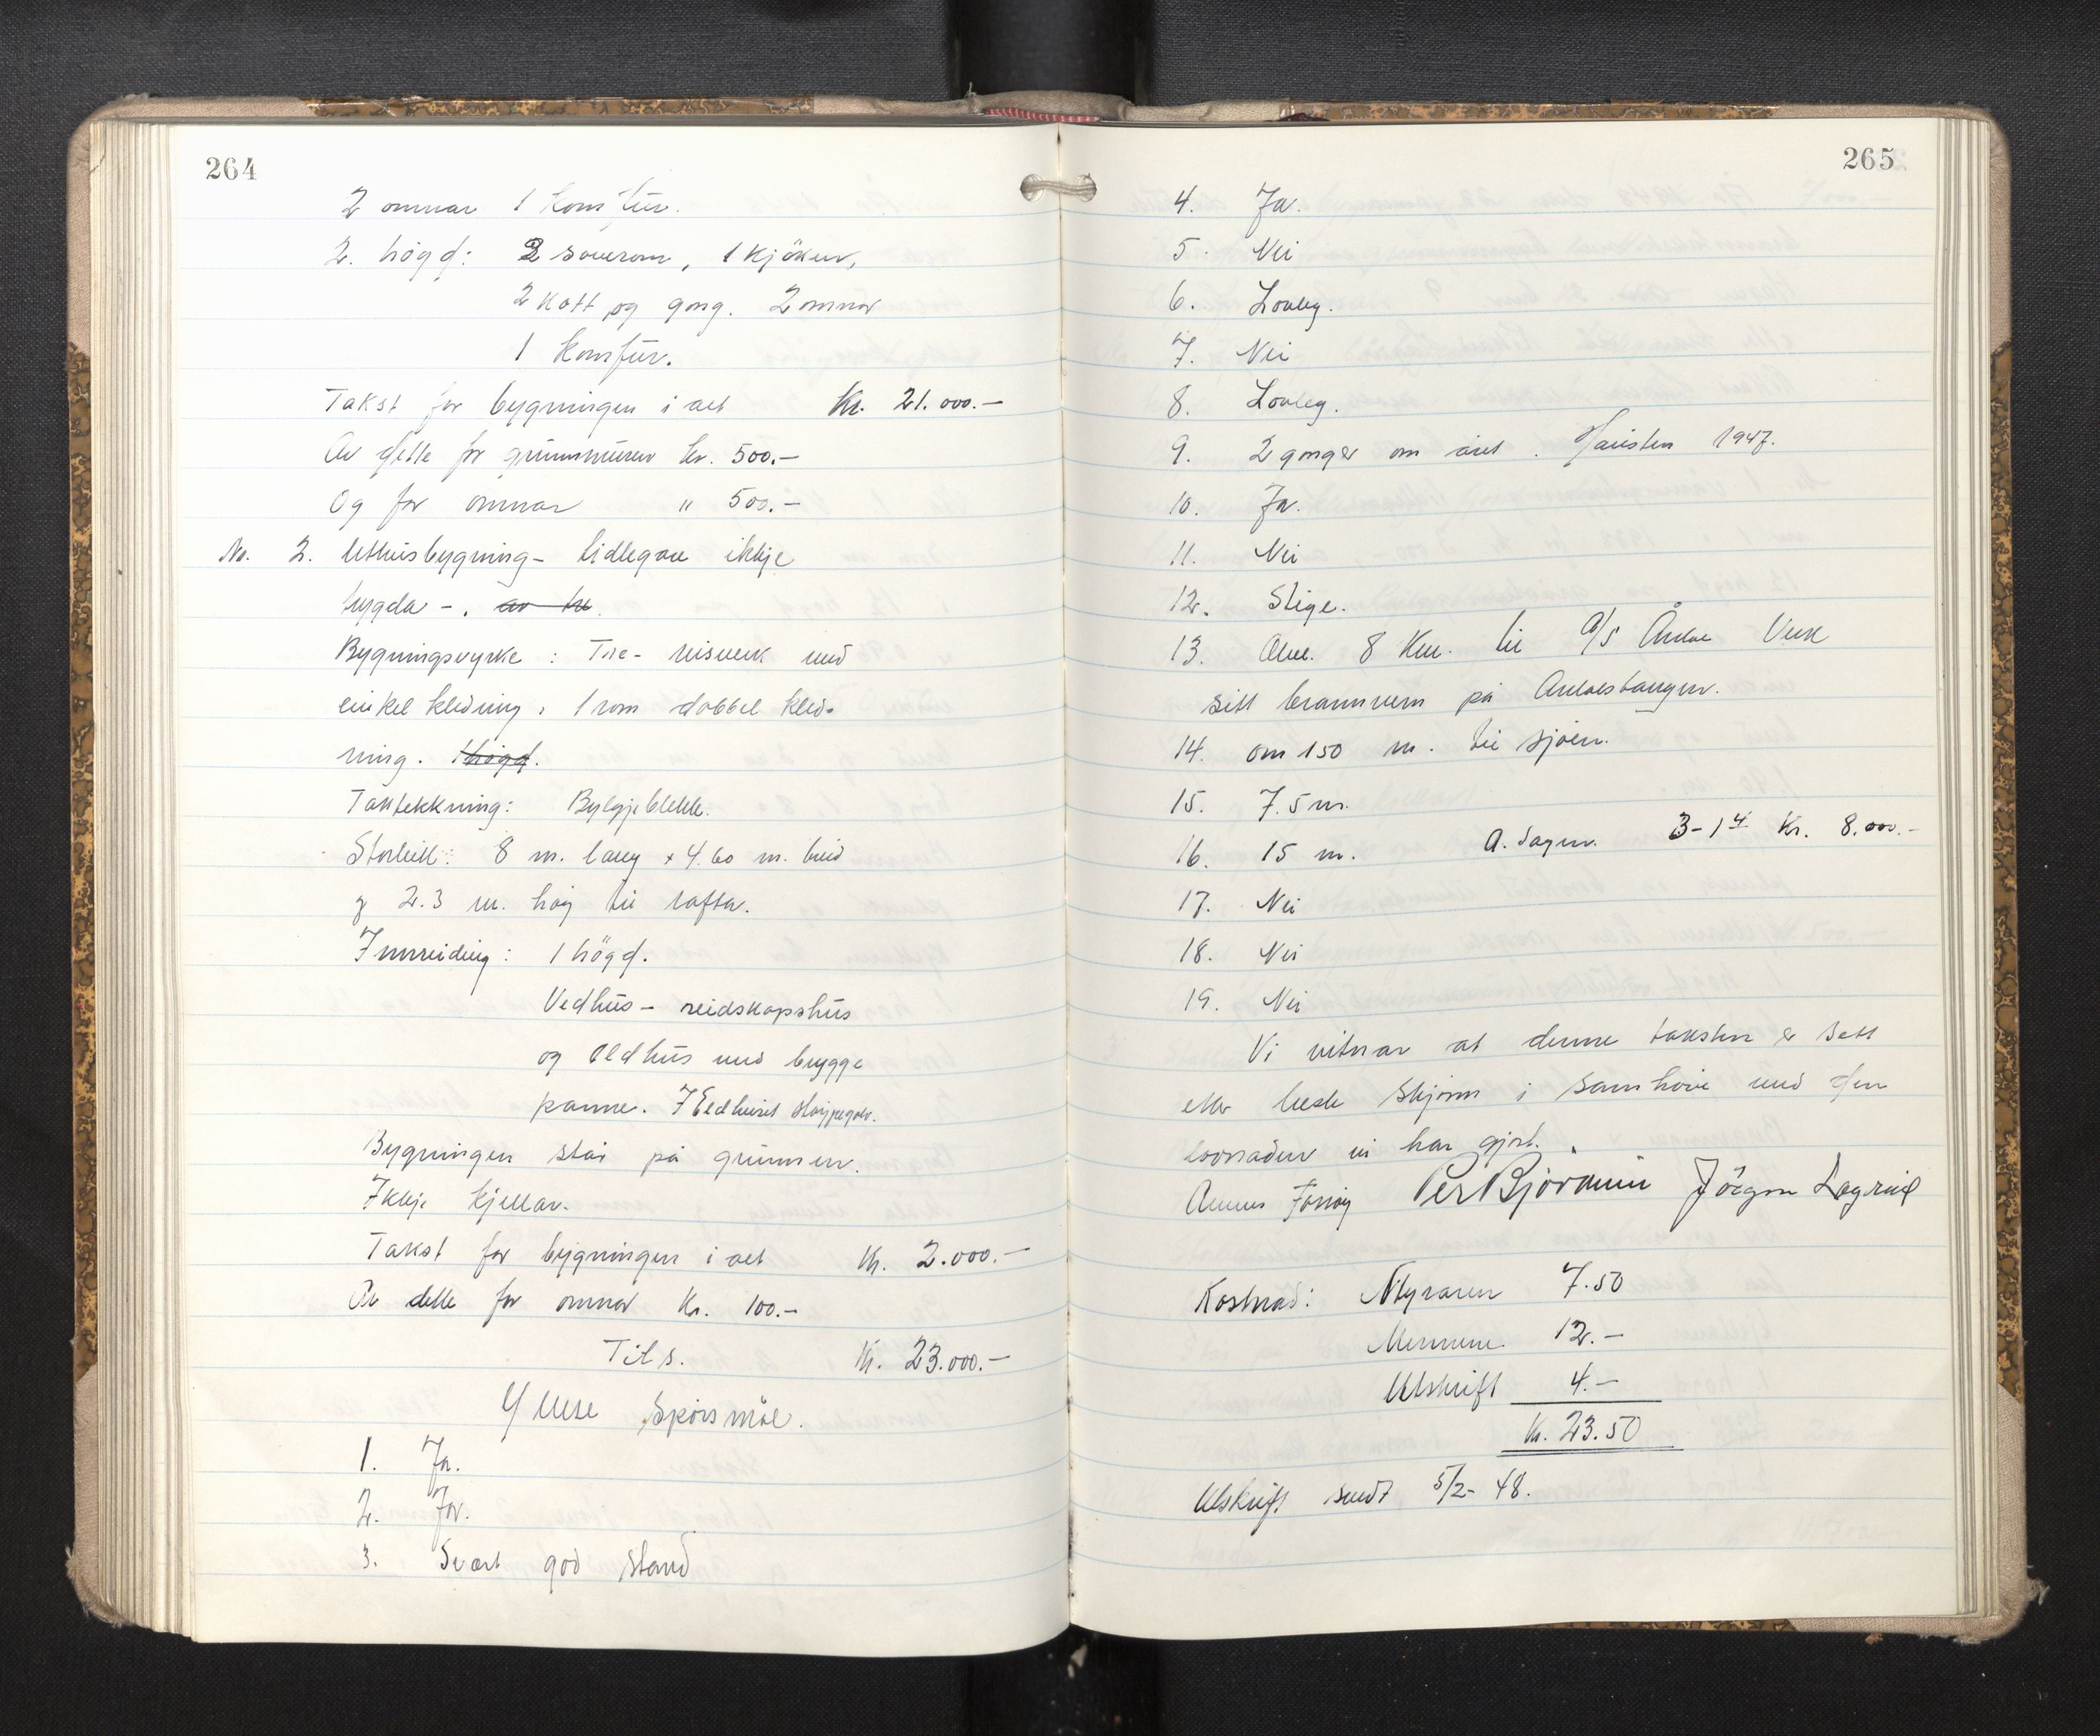 264
2 omnar 1 komfür.
2. högd: 2 soverom, 1 kjöken,
2 kott og gong. 2 omnar
1 komfür.
Takst for bygningen i alt Kr. 21.000.-
Av dette for grünnmüren kr. 500.-
Og for omnar " 500.-
No. 2. Uthüsbygning - tidlegare ikkje
trygda -. av tre.
Bygningsvyrke: Tre- reisverk med
enkel kledning, 1 rom dobbel kled-
ning. 1 högd.
Taktekkning: Bylgjeblekk.
Storleik: 8 m. lang x 4.60 m. breid
og 2.3 m. høg til rafta.
Innreiding: 1 högd.
Vedhüs - reidskapshüs
og Eldhüs med brygge
panne. I Eldhüset støypegolv.
Bygningen står på grünnen.
Ikkje kjellar.
Takst for bygningen i alt Kr. 2.000.-
Av dette for omnar Kr. 100.-
Tils. Kr. 23.000.-
Ymse Spørsmål.
1. Ja.
2. Ja.
3. Svært god stand
265
4. Ja.
5. Nei
6. Lovleg.
7. Nei
8. Lovleg.
9. 2 gonger om året. Haüsten 1947.
10. Ja.
11. Nei
12. Stige.
13. Oml. 8 Km. til A/S Årdal Verk
sitt brannvern på Årdalstangen.
14. om 150 m. til sjøen.
15. 7.5 m.
16. 15 m. A. Sagen. 3-1 4 Kr. 8.000.-
17. Nei
18. Nei
19. Nei
Vi vitnar at denne taksten er sett
etter beste skjønn i samhøve med den
lovnaden vi har gjort.
Per Bjørkum Jörgen Lægreid
Kostnad: Styraren 7.50
Mennene 12.-
Utskrift 4.-
Kr. 23.50
Utskrift sendt 5/2- 48.